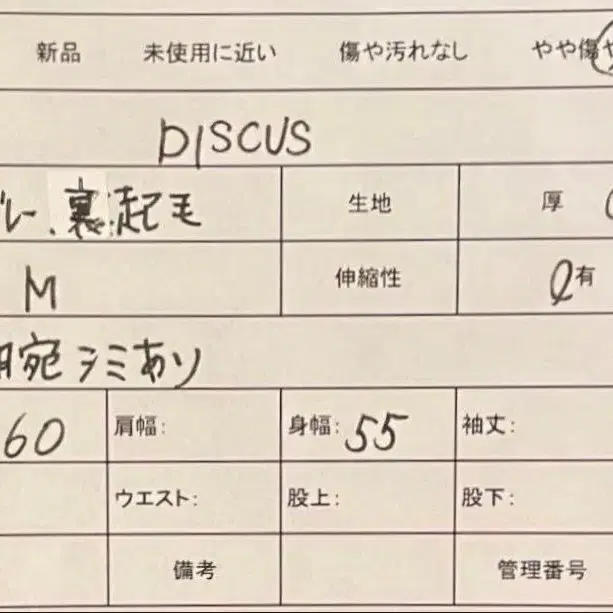 新品 未使用に近い 傷や汚れなし やや傷や
DISCUS
グレー、裏起毛 生地 厚
M 伸縮性 有
シミあり
60 肩幅: 身幅: 55 袖丈:
ウエスト: 股上: 股下:
備考 管理番号